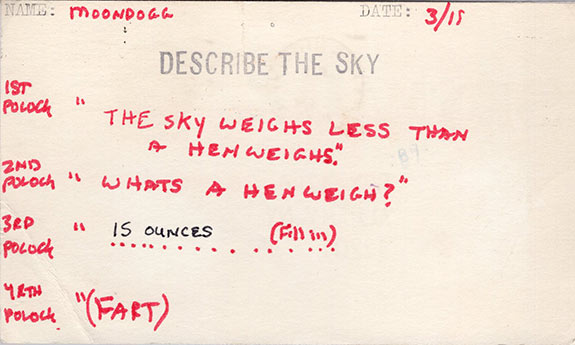 NAME: MOONDOGG DATE: 3/15
DESCRIBE THE SKY
1ST POLOCK " THE SKY WEIGHS LESS THAN
A HENWEIGHS."
2ND POLOCK " WHATS A HENWEIGH?"
3RD POLOCK " 15 OUNCES (Fill in)
4RTH POLOCK "(FART)